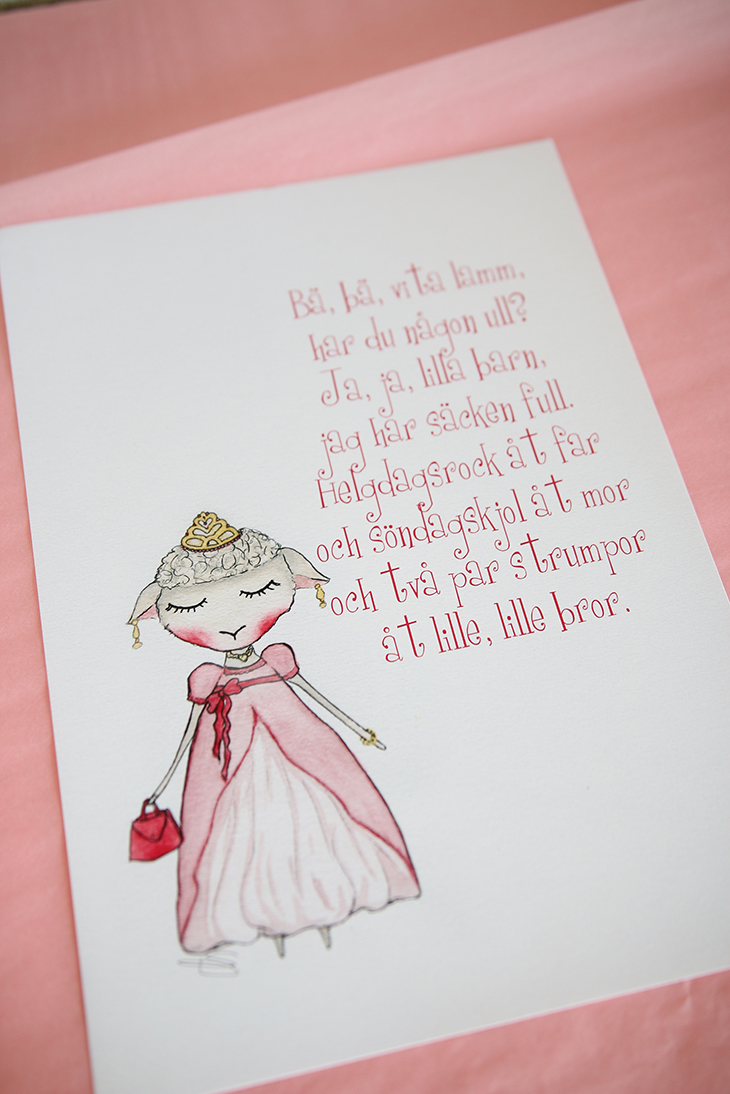 Bä, bä, vita lamm,
har du någon ull?
Ja, ja, lilla barn,
jag har säcken full.
Helgdagsrock åt far
och söndagskjol åt mor
och två par strumpor
åt lille, lille bror.